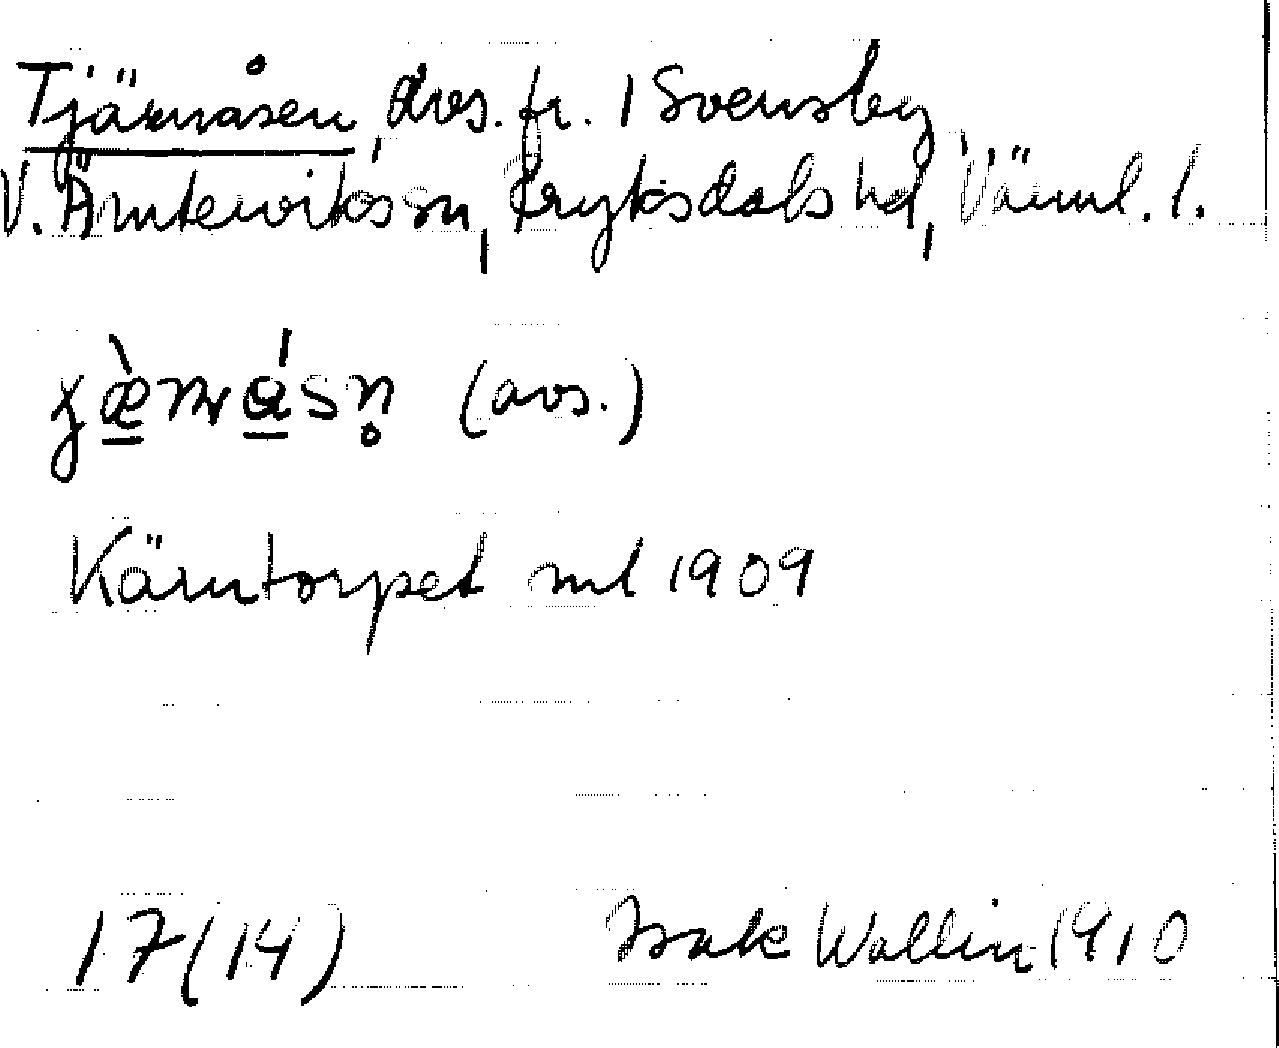 Tjärnåsen, avs. fr. 1 Svensby,
V. Ämterviks sn, Fryksdals hd, Värml. l.
(avs.)
Kärntorpet ml 1909
17(14) Isak Wallin 1910